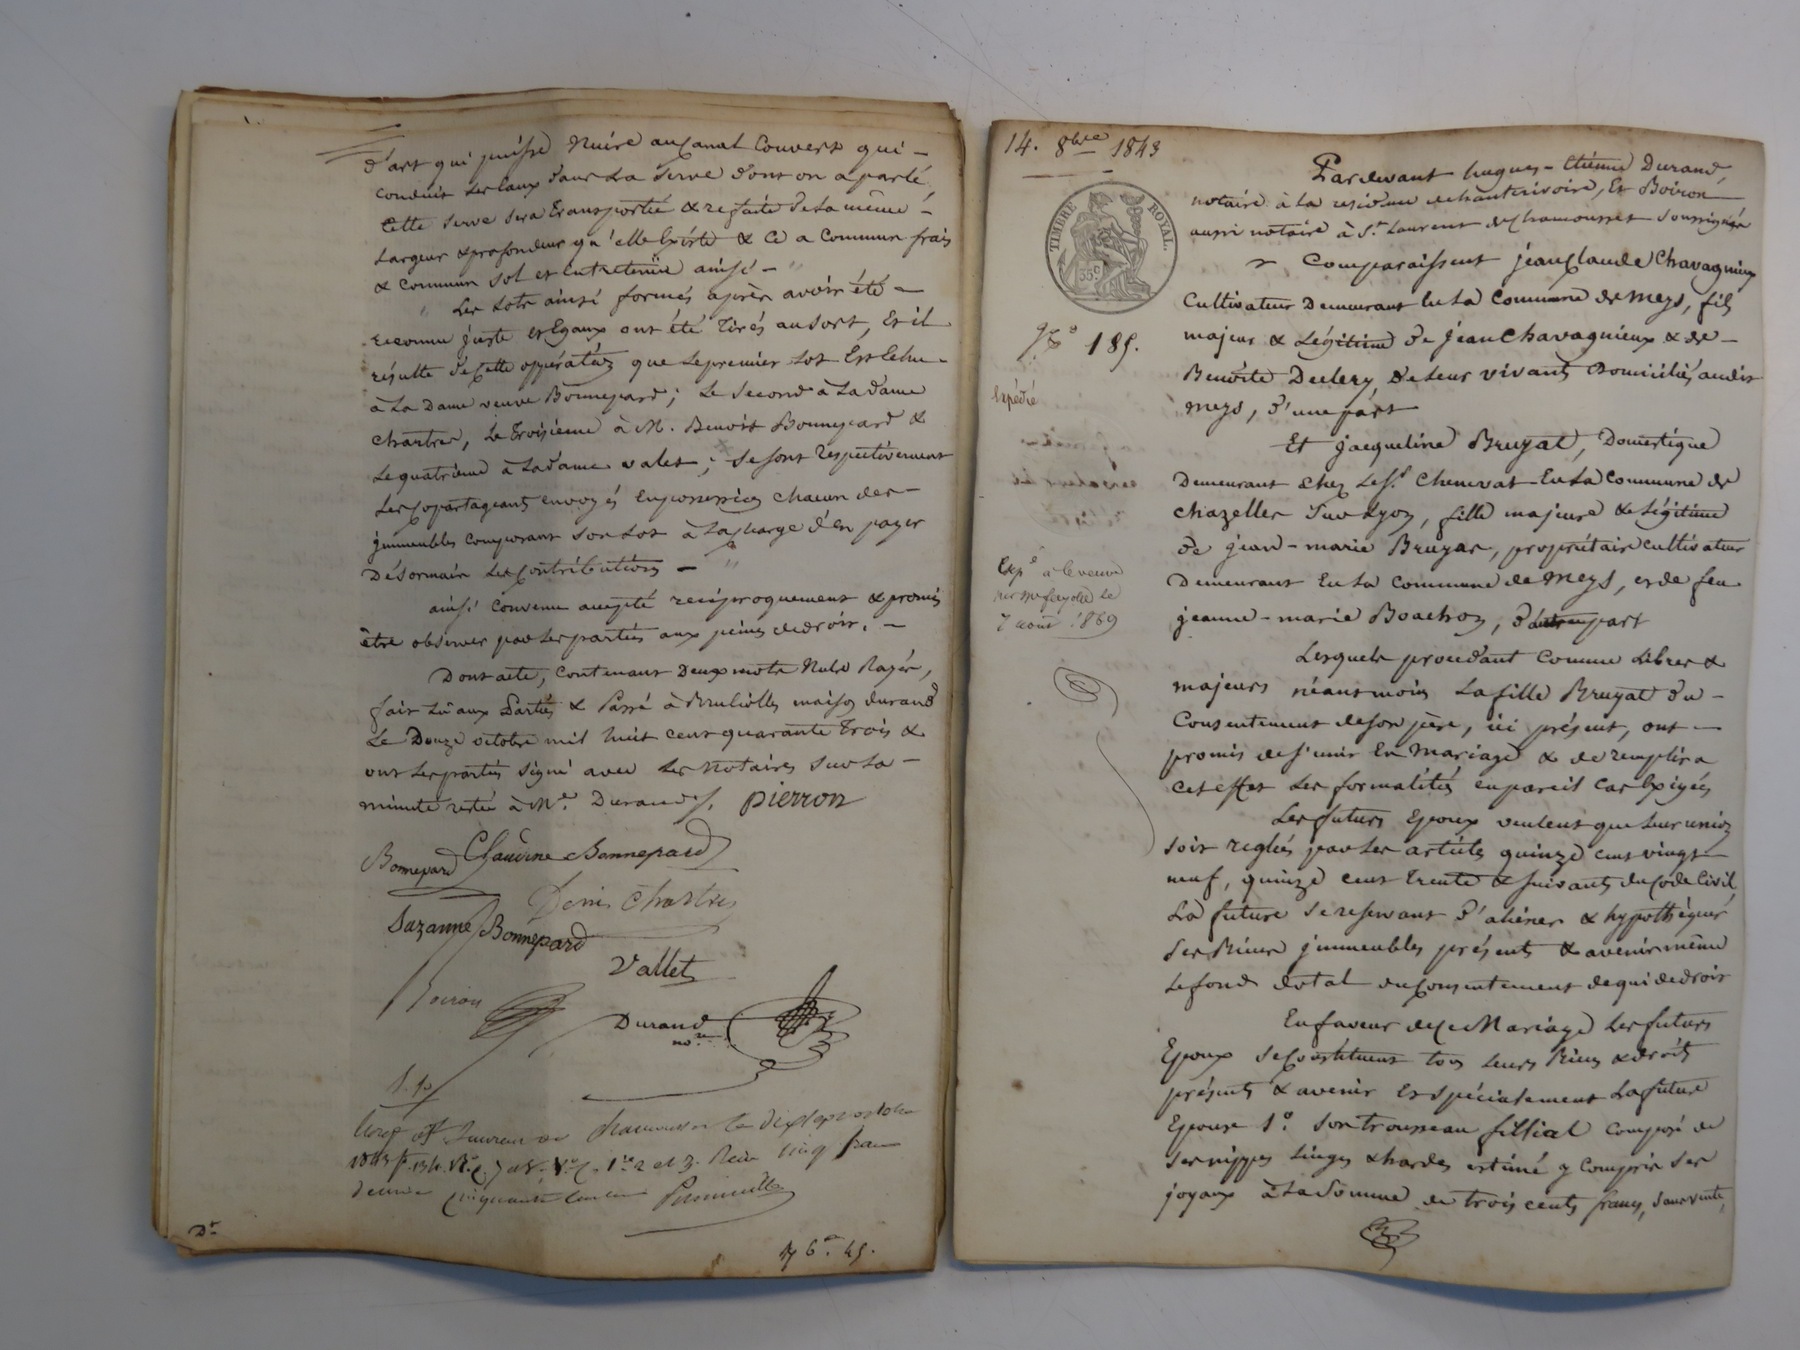 d'art qui puisse Nuire au Canal Couvert qui –
conduit Les Eaux dans La Serve dont on a parlé,
Cette Serve Sera transportée & refaite de La même –
Largeur & profondeur qu'elle Existe & Ce a Commun frais
& Commun Sol et Entretenüe ainsi –
Les Lots ainsi formés après avoir été –
reconnu juste et Egaux ont été Tirés au Sort, Et il
résulte de Cette opperation que Le premier Lot Est Echu –
à La Dame veuve Bonnepard; Le Second à La dame
Chartres, Le Troisieme à M. Benoit Bonnepard &
Le quatrieme à La dame valet; Se Sont Respectivement
Les Copartageants envoyés En possession Chacun des –
jmmeubles Composant Son Lot à La Charge d'en payer
Désormais Les Contributions –
ainsi Convenu accepté reciproquement & promis
être observer par Les parties aux peines de droit. –
Dont acte, Contenant Deux mots Nuls Rayés,
fait Lû aux Parties & Passé à Brulioles maison durand
Le Douze octobre mil huit cent quarante Trois &
ont Les parties Signé avec Les Notaires Sur La –
minute restée à Me. Durand. pierron
Bonnepard Claudine Bonnepard
Denis Chartres
Suzanne Bonnepard
Vallet
Boiron
Durand
nore.
St. Laurent de Chamousset le dix sept octobre
1843 f. 134 Reçu cinq francs
decime cinquante centimes
Dt.
14. 8bre 1843
TIMBRE ROYAL.
35c
No 185.
Expédié
Exp.
7 août 1869
Pardevant hugues-Etienne Durand,
notaire à La residence de hauterivoire, Et Boiron –
aussi notaire à St. Laurent de Chamousset Soussignés
Comparaissent jean Claude Chavagnieux
Cultivateur Demeurant En La Commune de Meys, fils
majeur & Légitime de jean Chavagnieux & de –
Benoite Declery, de Leur vivant Domiciliés audit
Meys, d'une part
Et jacqueline Bruyat, Domestique
Demeurant Chez Le Sr. Chenevat En La Commune de
Chazelles Sur Lyon, fille majeure & Légitime
de jean-marie Bruyat, propriétaire Cultivateur
Demeurant En La Commune de Meys, et de feu
jeanne-marie Boachon, d'autre part
Lesquels procedant Comme Libres &
majeurs néantmoins La fille Bruyat du –
Consentement de Son père, ici présent, ont –
promis de S'unir En Mariage & de remplir a
Cet effet Les formalités en pareil Cas Exigées
Les futurs Epoux veulent que Leur union
Soit reglée par Les articles quinze cent vingt
neuf, quinze cent Trente & Suivants du Code Civil,
La future Se reservant d'aliener & hypothéquer
Ses Biens jmmeubles présents & avenir même
Le fond dotal du Consentement de qui de droit
En faveur de Ce Mariage Les futurs
Epoux Se Constituent tous Leurs Biens & droits
présents & avenir Et Spécialement La future
Epouse 1o. Son Trousseau fillial Composé de
Ses nippes Linges & hardes estimé y Compris Ses
joyaux à La Somme de trois cents francs, Sans vente,